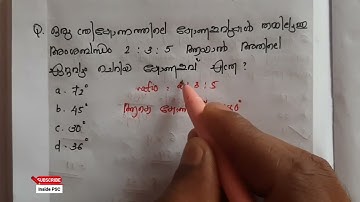 Q. ഒരു ത്രികോണത്തിലെ കോണളവുകൾ തമ്മിലുള്ള
അംശബന്ധം 2 : 3 : 5 ആയാൽ അതിലെ
ഏറ്റവും ചെറിയ കോണളവ് എത്ര ?
a. 72°
b. 45°
c. 30°
d. 36°
: 3 : 5
ആകെ
80°
SUBSCRIBE
Inside PSC